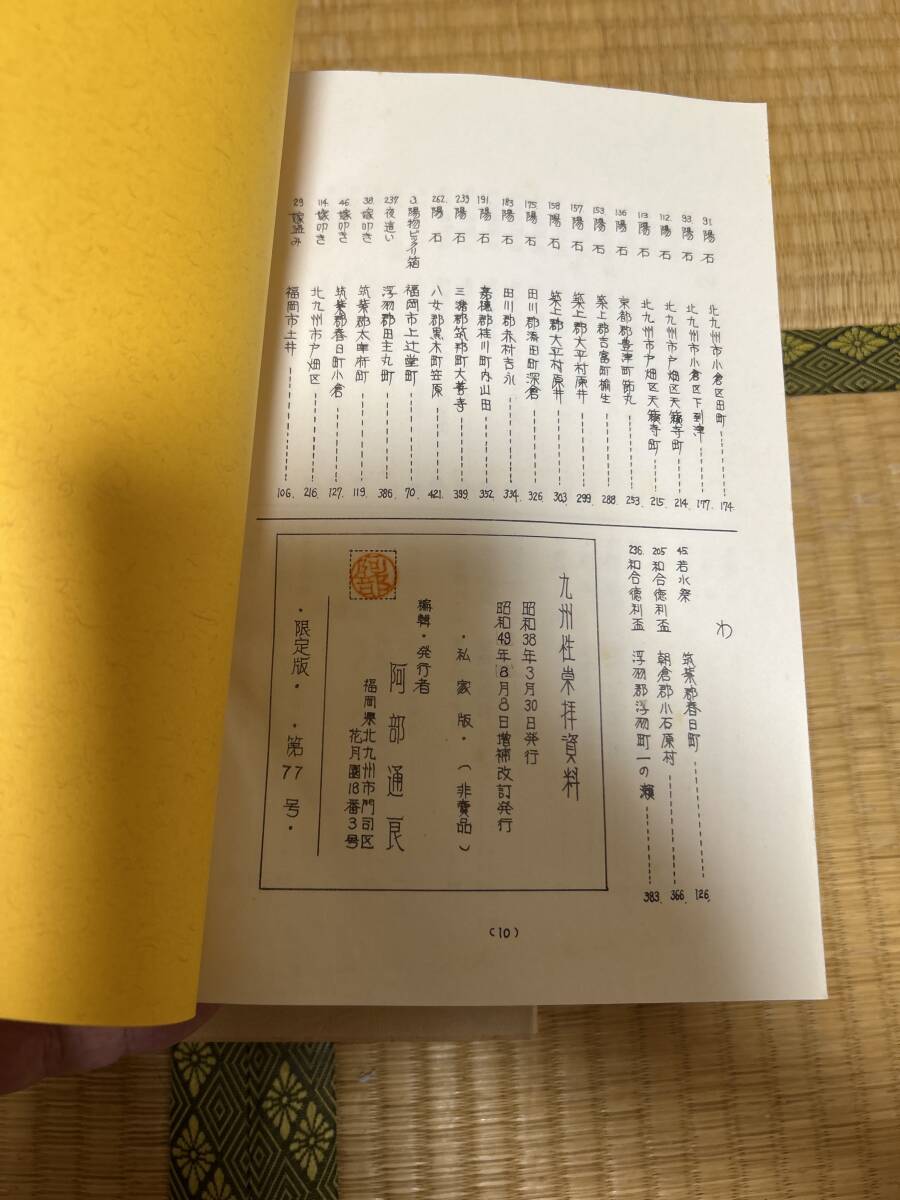 91. 陽石 北九州市小倉区田町 174.
93. 陽石 北九州市小倉区下到津 177.
112. 陽石 北九州市戸畑区天籟寺町 214.
113. 陽石 北九州市戸畑区天籟寺町 215.
136. 陽石 京都郡豊津町 253.
153. 陽石 築上郡吉富町楡生 288.
157. 陽石 築上郡大平村原井 299.
158. 陽石 築上郡大平村原井 303.
175. 陽石 田川郡添田町深倉 326.
183. 陽石 田川郡赤村吉永 334.
191. 陽石 嘉穂郡桂川町内山田 352.
239. 陽石 三潴郡筑邦町大善寺 399.
262. 陽石 八女郡黒木町笠原 421.
3. 陽物ビックリ箱 福岡市上辻堂町 70.
237. 夜這い 浮羽郡田主丸町 386.
38. 嫁叩き 筑紫郡太宰府町 119.
46. 嫁叩き 筑紫郡春日町小倉 127.
114. 嫁叩き 北九州市戸畑区 216.
29. 嫁盗み 福岡市土井 106.
わ
45. 若水祭 筑紫郡春日町 126.
205. 和合徳利盃 朝倉郡小石原村 366.
236. 和合徳利盃 浮羽郡浮羽町一の瀬 383.
九州性崇拝資料
昭和38年3月30日発行
昭和49年8月8日増補改訂発行
・私家版・(非賣品)
編輯・発行者
阿部通良
福岡県北九州市門司区
花月園18番3号
阿部
・限定版・ ・第77号・
(10)